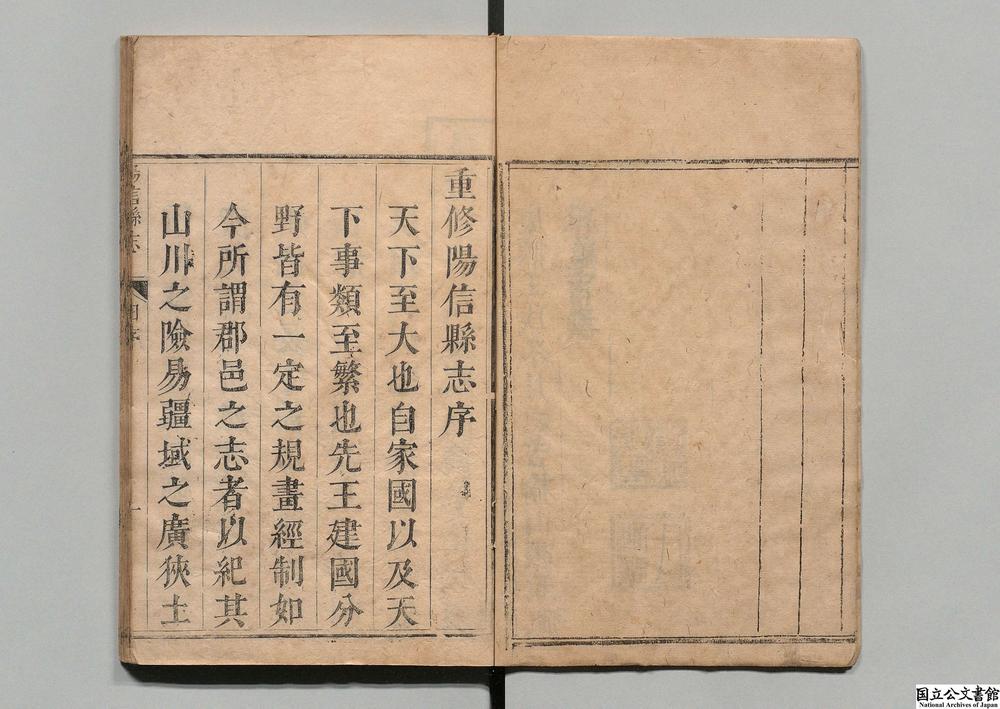 重修陽信縣志序
天下至大也自家國以及天
下事類至繁也先王建國分
野皆有一定之規畫經制如
今所謂郡邑之志者以紀其
山川之險易疆域之廣狹土
信縣志
一
国立公文書館
National Archives of Japan